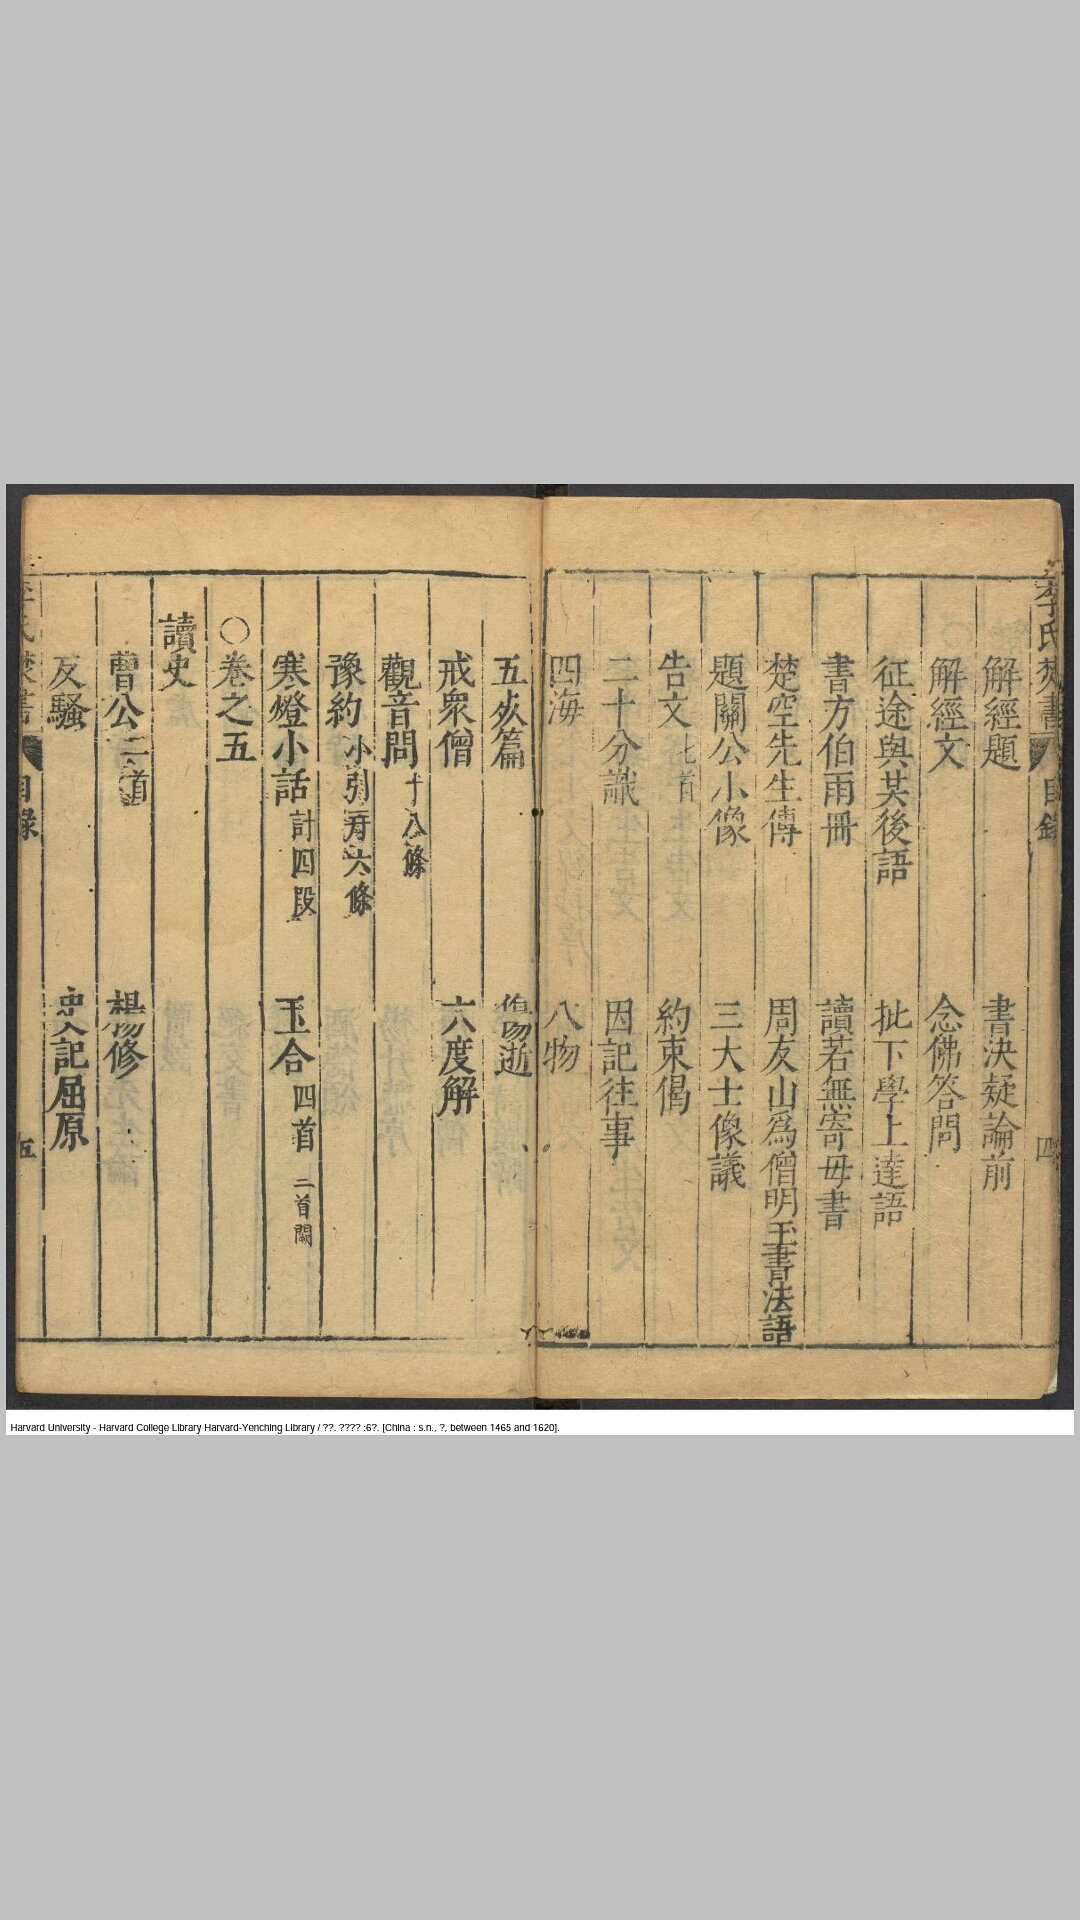 李氏焚書 目錄 四
解經題 書決疑論前
解經文 念佛答問
征途與共後語 批下學上達語
書方伯雨冊 讀若無寄母書
楚空先生傳 周友山爲僧明玉書法語
題關公小像 三大士像議
告文 七首 約束偈
二十分識 因記往事
四海 八物
五㱙篇 傷逝
戒衆僧 六度解
觀音問 十八條
豫約 小引 并六條
寒燈小話 計四段 玉合 四首 二首闕
○卷之五
讀史
曹公 二首 楊修
反騷 史記屈原
李氏焚書 目錄 五
Harvard University - Harvard College Library Harvard-Yenching Library / ??. ???? :6?. [China : s.n., ?, between 1465 and 1620].